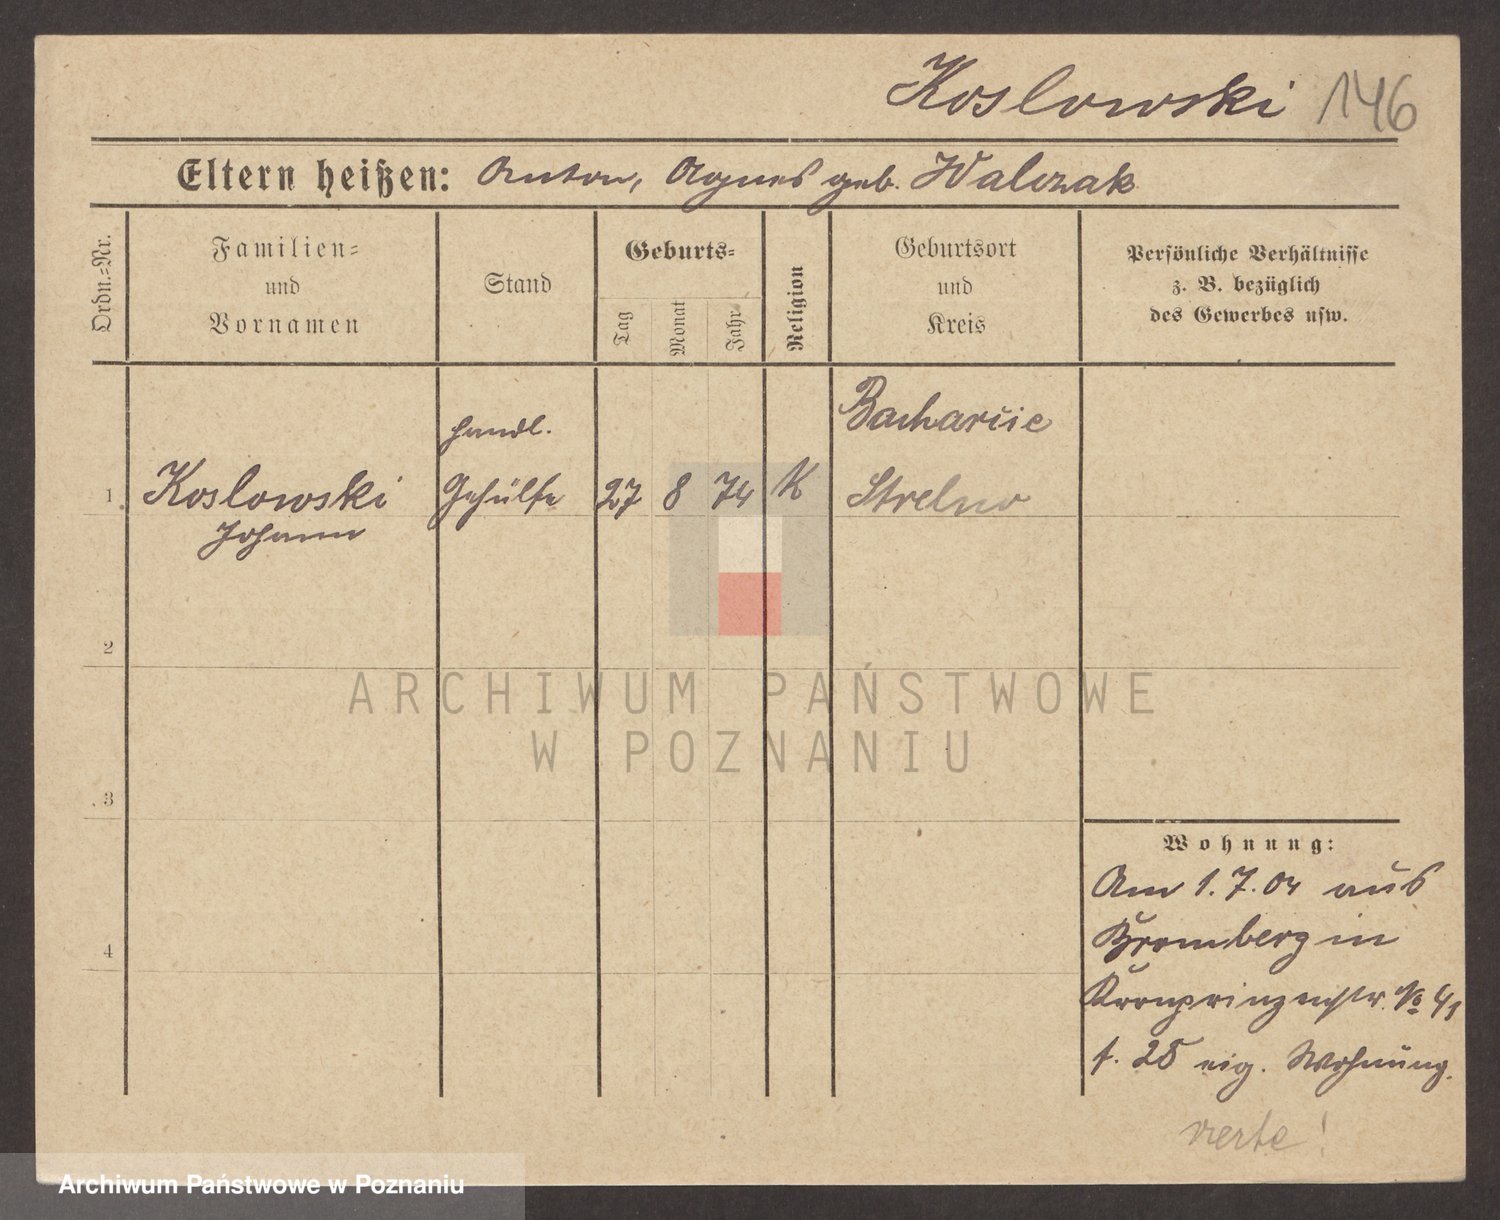 Koslowski 146
Eltern heißen: Anton, Agnes geb. Walczak
Ordn.=Nr.
Familien=
und
Vornamen
Stand
Geburts=
Tag
Monat
Jahr
Religion
Geburtsort
und
Kreis
Persönliche Verhältnisse
z. B. bezüglich
des Gewerbes usw.
1
Koslowski
Johann
Handl.
Gehülfe
27 8 74 K
Bacharcie
Strelno
2
3
4
Wohnung:
Am 1.7.04 aus
Bromberg in
Kronprinzenstr. No
f. 25 eig. Wohnung.
ARCHIWUM PAŃSTWOWE
W POZNANIU
Archiwum Państwowe w Poznaniu